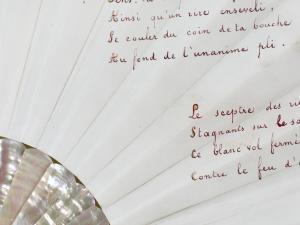 Ainsi qu'un rire enseveli,
Se couler du coin de ta bouche
Au fond de l'unanime pli.
Le sceptre des
Stagnants sur le
Ce blanc vol fermé
Contre le feu